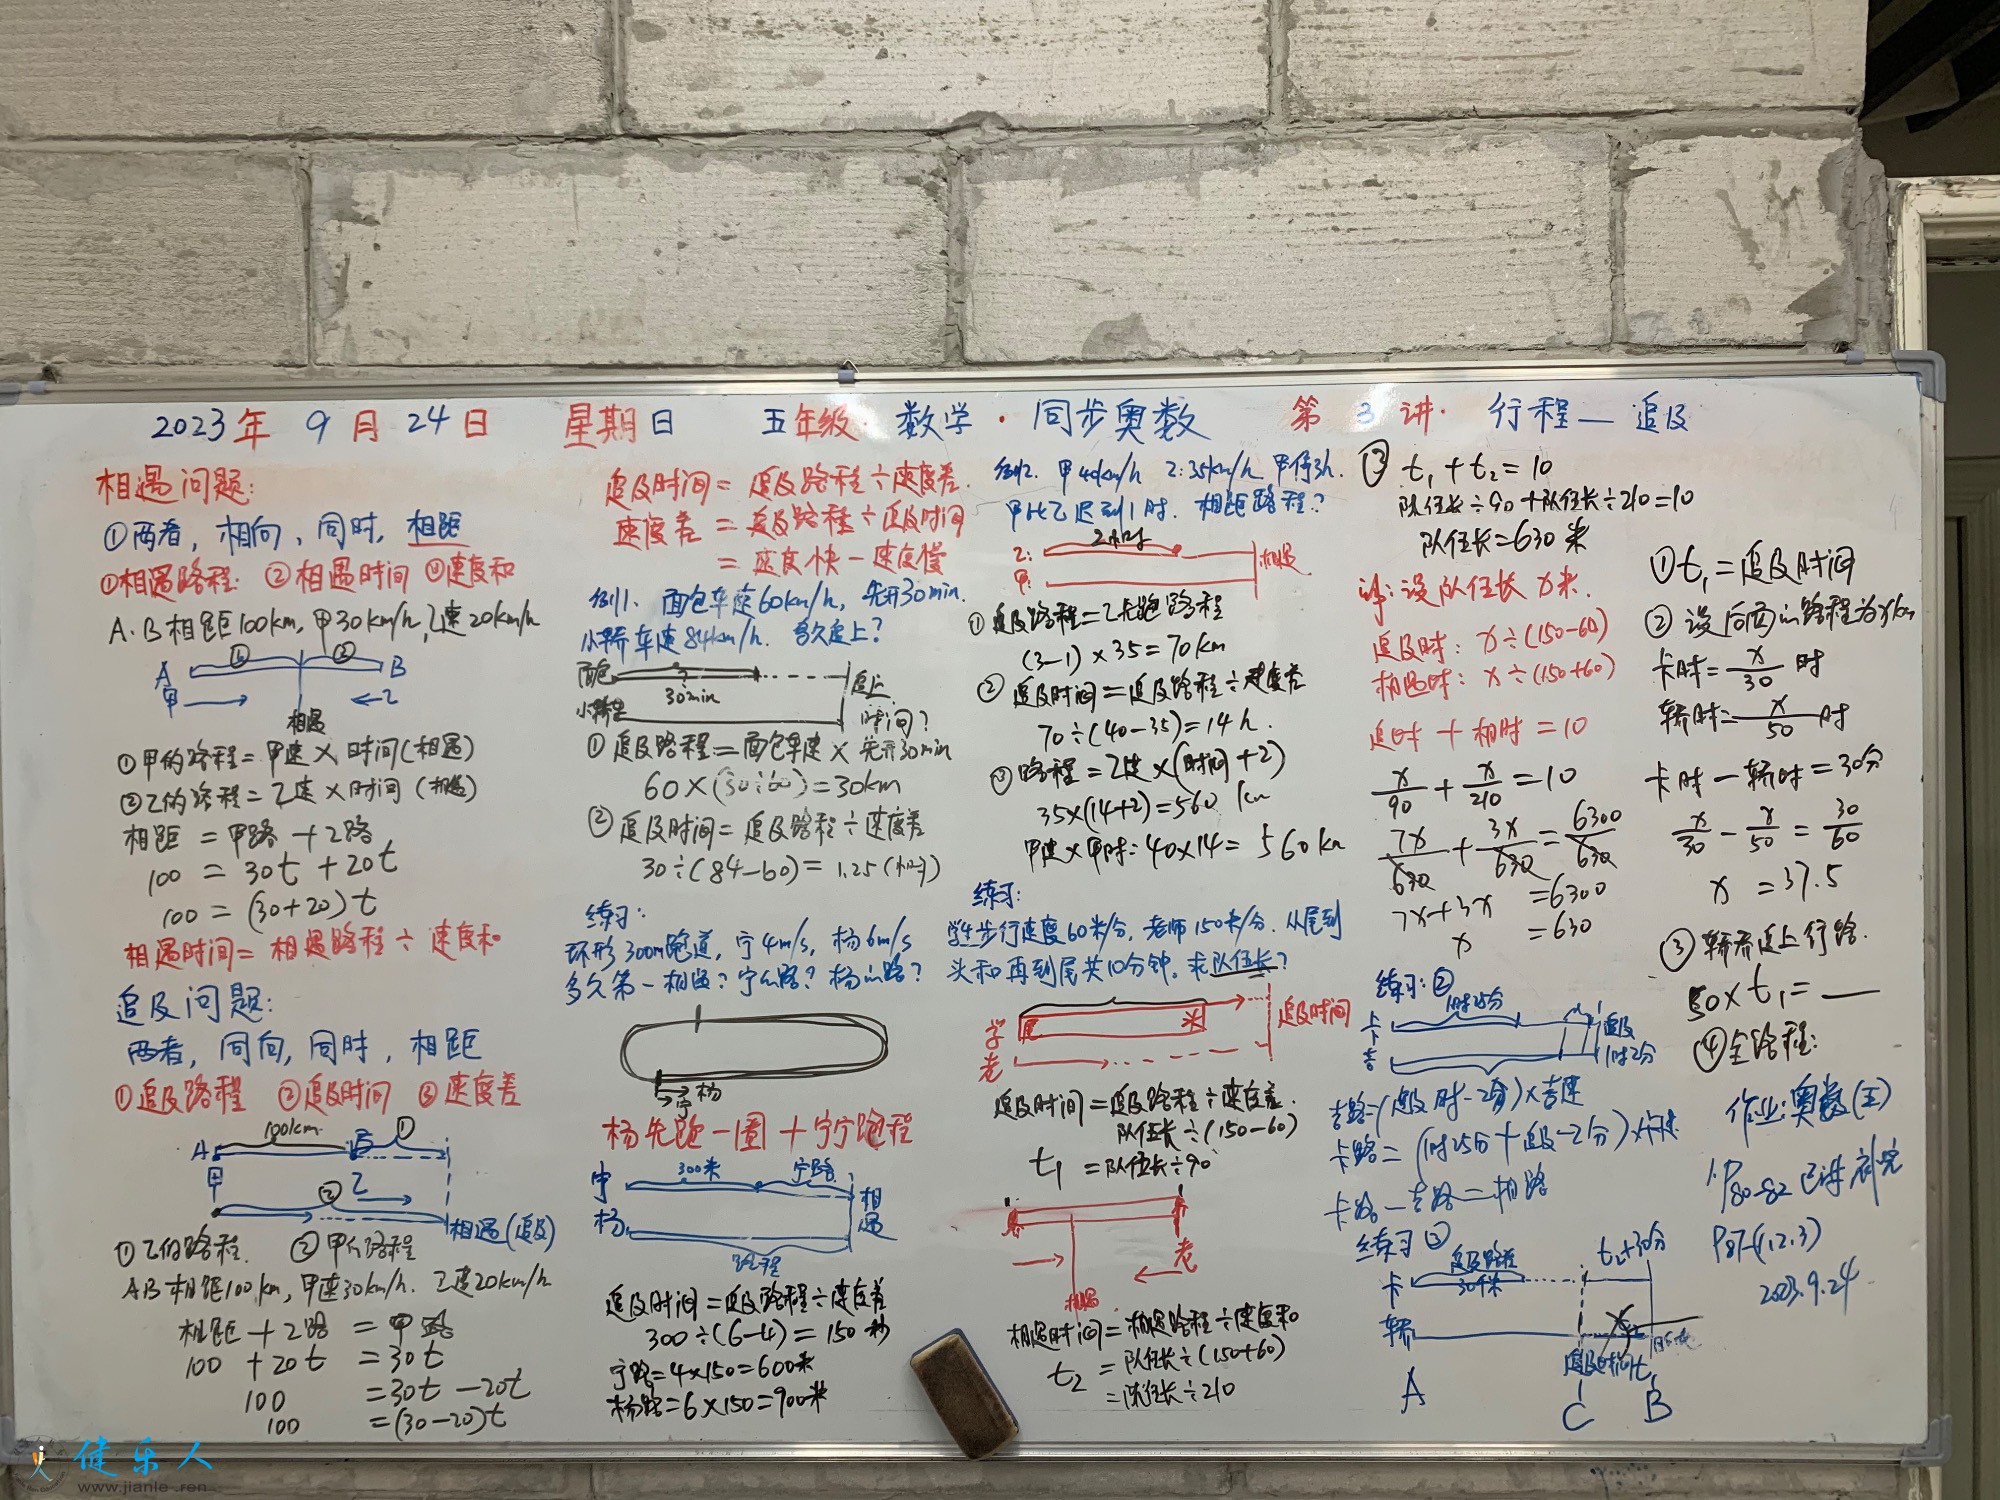 2023年 9月 24日 星期日 五年级·数学·同步奥数 第3讲·行程—追及
相遇问题:
①两者, 相向、同时, 相距
①相遇路程. ②相遇时间 ③速度和
A.B相距100km, 甲30km/h, 乙速20km/h
① ②
A B
甲 乙
相遇
①甲的路程=甲速×时间(相遇)
②乙的路程=乙速×时间(相遇)
相距 = 甲路+乙路
100 = 30t + 20t
100 = (30+20)t
相遇时间=相遇路程÷速度和
追及问题:
两者, 同向, 同时, 相距
①追及路程 ②追及时间 ③速度差
100km ①
A B
甲 ② 乙
相遇(追及)
①乙的路程. ②甲的路程
AB相距100km, 甲速30km/h. 乙速20km/h
相距+乙路 = 甲路
100 + 20t = 30t
100 = 30t - 20t
100 = (30-20)t
追及时间= 追及路程÷速度差.
速度差 = 追及路程÷追及时间
= 速度快-速度慢
例1. 面包车速60km/h, 先开30min.
小轿车速84km/h. 多久追上?
面包
30min
追上
小轿车
时间?
①追及路程=面包车速×先开30min
60×(30÷60)=30km
②追及时间=追及路程÷速度差
30÷(84-60)=1.25(小时)
练习:
环形300m跑道, 宁4m/s, 杨6m/s
多久第一相遇? 宁的路? 杨的路?
宁 杨
杨先跑一圈+宁宁跑程
300米 宁路
宁
杨
相遇
路程
追及时间=追及路程÷速度差
300÷(6-4)=150秒
宁路=4×150=600米
杨路=6×150=900米
例2. 甲40km/h 乙:35km/h 甲停3h.
甲比乙迟到1时. 相距路程?
2小时
乙:
甲:
相遇
①追及路程=乙先跑路程
(3-1)×35=70km
②追及时间=追及路程÷速度差
70÷(40-35)=14h.
③路程=乙速×(时间+2)
35×(14+2)=560 km
甲速×甲时: 40×14= 560km
练习:
学生步行速度60米/分, 老师150米/分. 从尾到
头和再到尾共10分钟. 求队伍长?
学 尾 头
老
追及时间
追及时间=追及路程÷速度差.
队伍长÷(150-60)
t₁ =队伍长÷90
老
相遇
相遇时间=相遇路程÷速度和
t₂ =队伍长÷(150+60)
=队伍长÷210
③ t₁+t₂=10
队伍长÷90+队伍长÷210=10
队伍长=630米
详: 设队伍长x米.
追及时: x÷(150-60)
相遇时: x÷(150+60)
追时+相时=10
x/90 + x/210 = 10
7x/630 + 3x/630 = 6300/630
7x+3x =6300
x =630
练习:②
1时25分
卡
吉
追及
1时2分
吉路=(追及时-2分)×吉速
卡路=(1时25分+追及-2分)×卡速
卡路-吉路=相路
练习③
追及路程 t₂+30分
卡 30千米
轿
追及时间t₁
A C B
①t₁=追及时间
②设后面的路程为xkm
卡时=x/30时
轿时=x/50时
卡时-轿时=30分
x/30 - x/50 = 30/60
x =37.5
③轿车追上行路.
50×t₁=
④全路程:
作业:奥数(五)
1.P80-82已讲补完
P87-(1,2,3)
2023.9.24
健乐人
www.jianle.ren